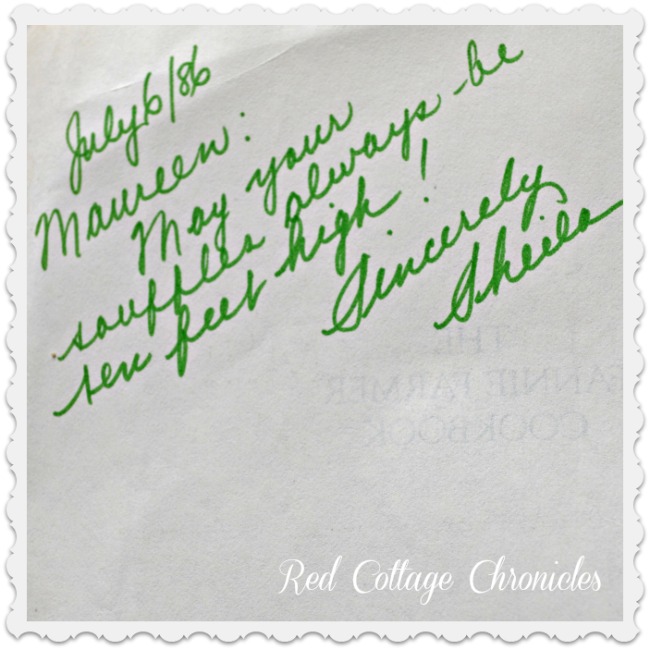 July 6/86
Maureen:
May your
souffles always be
ten feet high!
Sincerely
Sheila
THE
FANNIE FARMER
COOKBOOK
Red Cottage Chronicles